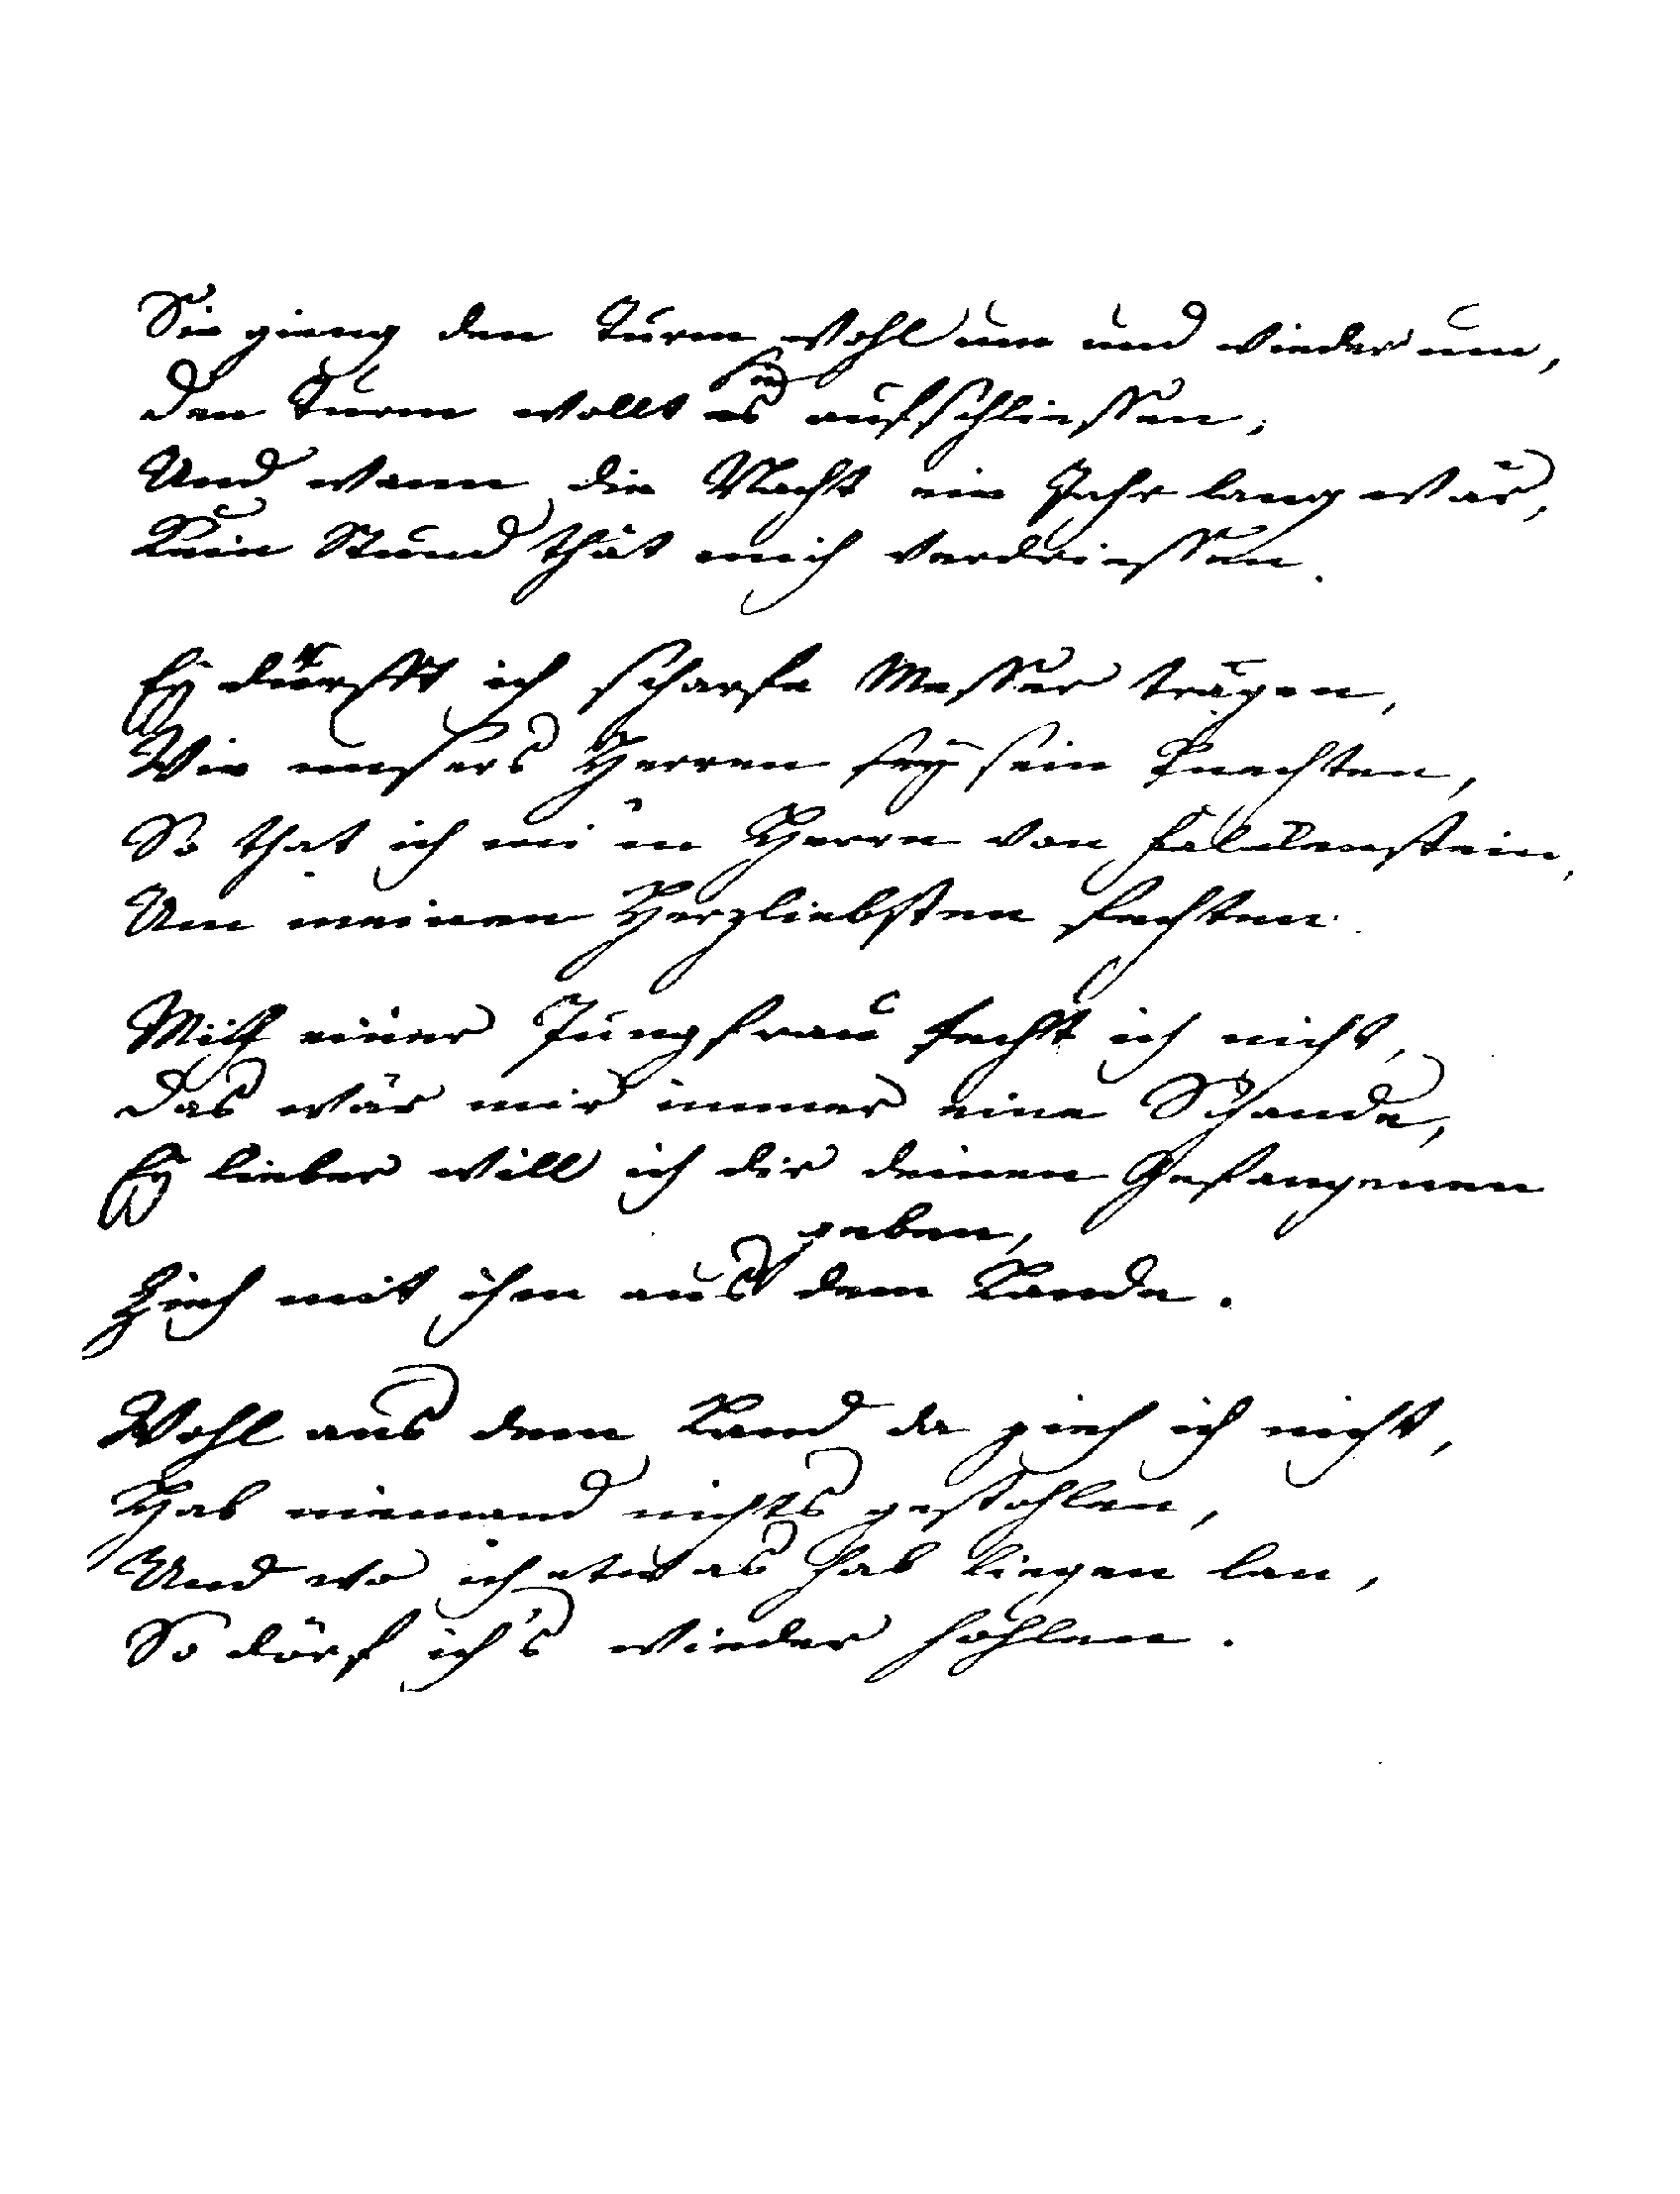 Sie gieng den Turm wohl um und wieder um,
sie
Den Turm wollt es aufschliessen,
Und wann die Nacht ein Jahr lang wär,
Kein Stund thät mich verdriessen.
Ey dürfft ich scharfe Messer trägen,
Wie unsers Herren sey sein Knechten,
So thät ich mi'm Herrn von Falckenstein,
Um meinen Herzliebsten fechten.
Mitt einer Jungfrau fecht ich nicht,
Das wär mir immer eine Schande,
Ey lieber will ich dir deinen Gefangenen
geben,
Zieh mit ihm aus dem Lande.
Wohl aus dem Land da zieh ich nicht,
Hab niemand nichts gestohlen,
Und wo ich etwas hab liegen lan,
So dörf ich's wieder hohlen.